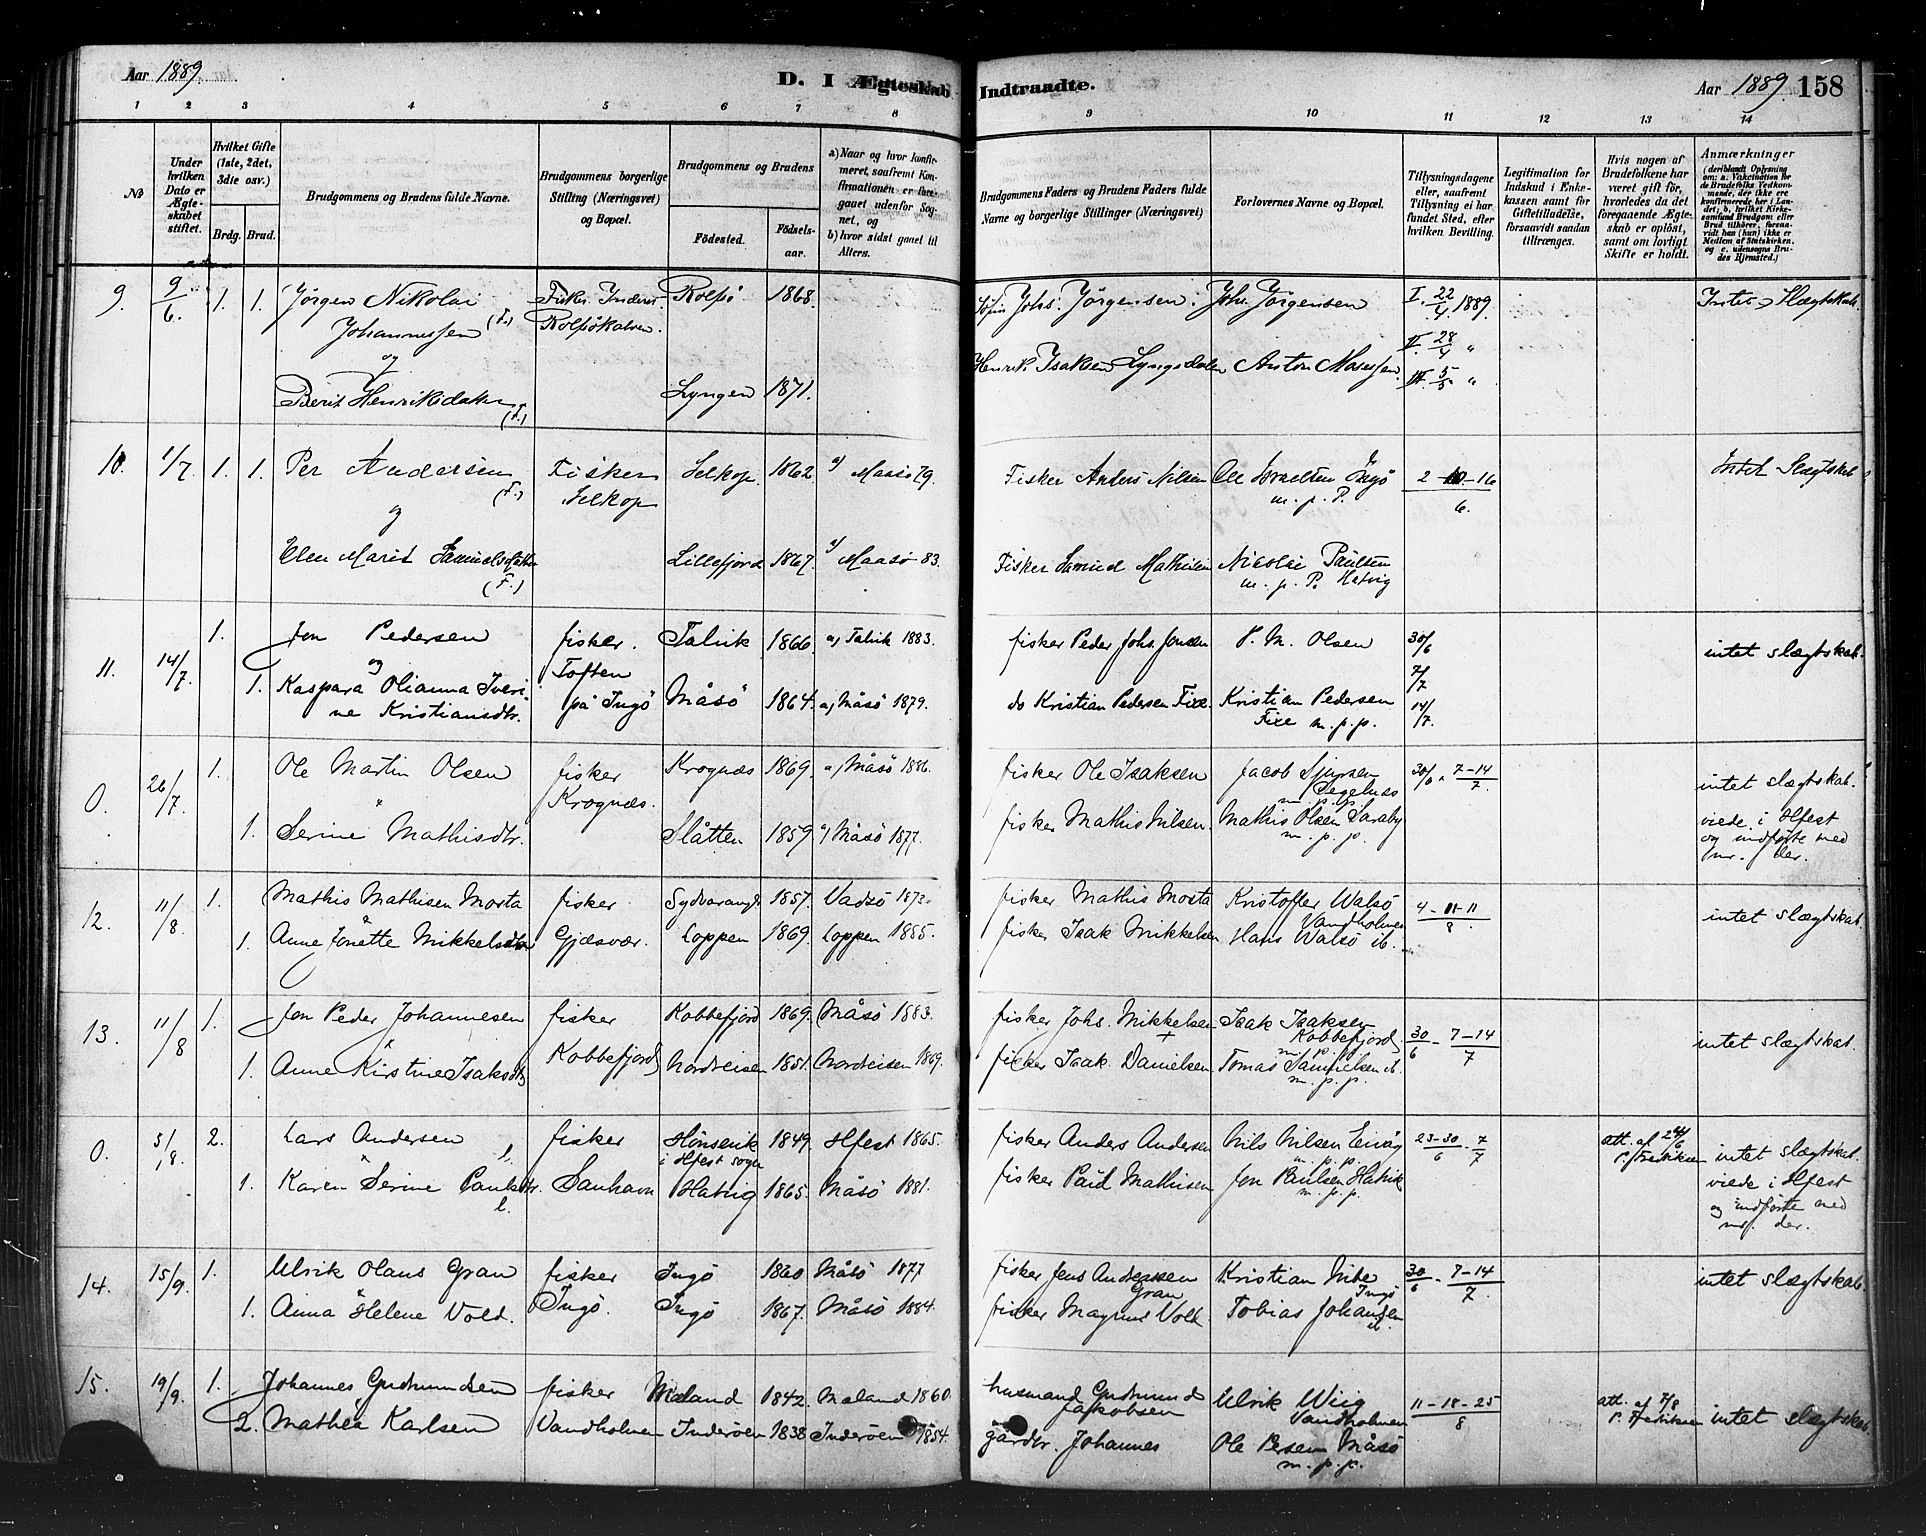 Aar 1889.
D. I Ægteskab Indtraadte.
Aar 1889. 158
1 2 3 4 5 6 7 8 9 10 11 12 13 14
No
Under hvilken Dato er Ægteskabet stiftet.
Hvilket Gifte (1ste, 2det, 3die osv.)
Brdg. Brud.
Brudgommens og Brudens fulde Navne.
Brudgommens borgerlige Stilling (Næringsvei) og Bopæl.
Brudgommens og Brudens
Fødested.
Fødselsaar.
a) Naar og hvor konfirmeret, saafremt Konfirmationen er foregaaet udenfor Sognet, og
b) hvor sidst gaaet til Alters.
Brudgommens Faders og Brudens Faders fulde Navne og borgerlige Stillinger (Næringsvei)
Forlovernes Navne og Bopæl.
Tillysningsdagene eller, saafremt Tillysning ei har fundet Sted, efter hvilken Bevilling.
Legitimation for Indskud i Enkekassen samt for Giftetilladelse, forsaavidt saadan tiltrænges.
Hvis nogen af Brudefolkene har været gift før, hvorledes da det foregaaende Ægteskab er opløst, samt om lovligt Skifte er holdt.
Anmærkninger (deriblandt Oplysning om: a. Vakcination for de Brudefolks Vedkommende, der ikke ere konfirmerede her i Landet; b. hvilket Kirkesamfund Brudgom eller Brud tilhører, forsaavidt han (hun) ikke er Medlem af Statskirken, og c. udensogns Brudes Hjemsted.)
9. 9/6. 1. 1. Jørgen Nikolai Fisker Rolfsö 1868. Johs. Jörgensen. Johs. Jörgensen I. 22/4 1889. Intet Slægtskab.
Johannessen (F.) Rolfsökalven. II. 28/4 "
og Henrik Isaksen Lyngsdalen Anton Mosessen. III. 5/5 "
Berit Henriksdatter (F.) Lyngen 1871.
10. 1/7. 1. 1. Per Andersen (F.) Fisker Selkop. 1862. a) Maasö 79. Fisker Anders Nilsen Ole Israelsen Ingö 2-10-16/6. Intet Slægtskab
og Selkop m. p. P.
Elen Marit Samuelsdatter (F.) Lillefjord 1867. a) Maasö 83. Fisker Samuel Mathisen Nicolai Paulsen
m. p. P. Hatvig
11. 14/7. 1. Jon Pedersen fisker. Talvik 1866 a) Talvik 1883. fisker Peder Johs. Jensen P. M. Olsen 30/6 intet slægtskab.
og Toften 7/7
1. Kaspara Olianna Iverine Kristiansdtr. på Ingö Måsö 1864. a) Måsö 1879. do Kristian Pedersen Fixe. Kristian Pedersen Fixe m.p.p. 14/7.
0. 26/7. 1. Ole Martin Olsen fisker Krognæs 1869. a) Måsö 1886. fisker Ole Isaksen Jacob Sjursen 30/6 - 7-14/7. intet slægtskab.
Krognæs. Segelnæs m. p. p.
1. Serine Mathisdtr. Slåtten 1859 a) Måsö 1877. fisker Mathis Nilsen. Mathis Olsen Saraby m. p. p. viede i Hfest og indførte med nr. der.
12. 11/8. 1. Mathis Mathisen Mosta fisker Sydvarang. 1857. Vadsö 1873. fisker Mathis Mosta Kristoffer Walsö Vandholmen 4-11-11/8 intet slægtskab.
1. Anne Jonette Mikkelsdtr Gjæsvær. Loppen 1869. Loppen 1885. fisker Isak Mikkelsen Hans Walsö ib.
13. 11/8 1. Jon Peder Johannesen fisker Kobbefjord 1869. Måsö 1883. fisker Johs. Mikkelsen Isak Isaksen Kobbefjord m. p. p. 30/6 - 7-14/7 intet slægtskab.
1. Anne Kirstine Isaksdtr Kobbefjord Nordreisen 1851. Nordreisen 1869. fisker Isak Danielsen Tomas Samuelsen ib. m. p. p.
0. 5/8. 2. Lars Andersen l. fisker Hönsevik i Hfest sogn 1849. Hfest 1865. fisker Anders Andersen Nils Nilsen m. p. p. 23-30/6 - 7/7 att. af 24/6 P. Fredriksen intet slægtskab.
1. Karen Serine Paulsdtr. l. Sanhavn Hatvig 1865. Måsö 1881. fisker Paul Mathisen Jon Paulsen Hatvik m. p. p. viede i Hfest og indførte med nr. der.
14. 15/9. 1. Ulrik Olaus Gran fisker Ingö 1860 Måsö 1877 fisker Jens Anderssen Gran Kristian Mibe Ingö 30/6 - 7-14/7. intet slægtskab.
1. Anna Helene Vold. Ingö. Ingö 1867. Måsö 1884. fisker Magnus Vold Tobias Johansen ib.
15. 19/9. 1. Johannes Gudmundsen fisker Mæland 1842. Mæland 1860. husmand Gudmund Jakobsen Ulrik Wiig Vandholmen 11-18-25/8 att. af 7/8 P. Fredriksen intet slægtskab.
2. Mathea Karlsen Vandholmen Inderöen 1838 Inderöen 1854. gårdbr. Johannes Ole Persen Måsö m. p. p.